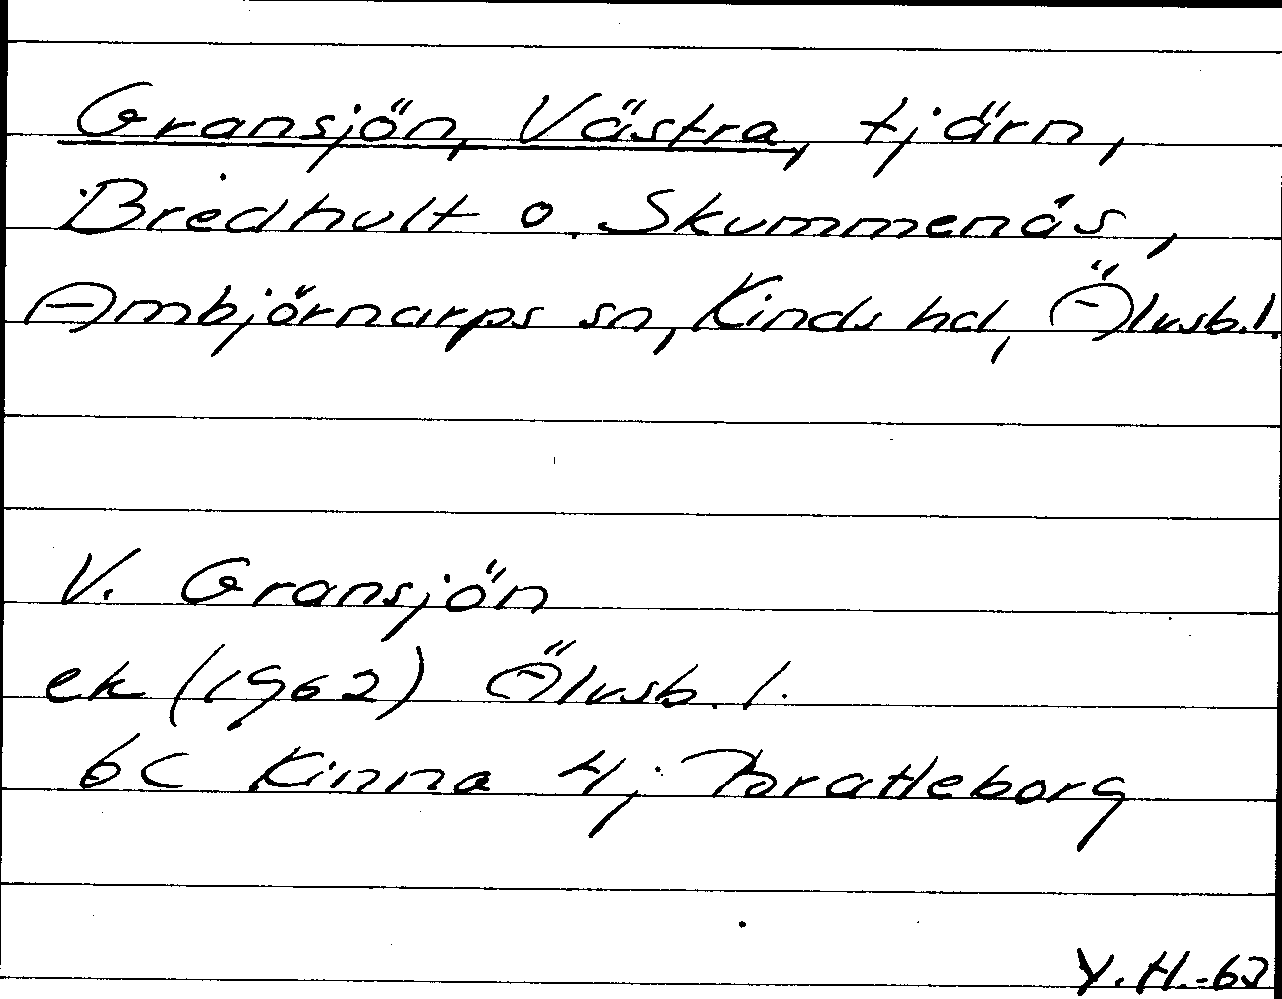 Gransjön, Västra, tjärn,
Bredhult o. Skummenås,
Ambjörnarps sn, Kinds hd, Älvsb.l.
V. Gransjön
ek (1962) Älvsb. l.
6C Kinna 4; Brattleborg
Y.H.-63